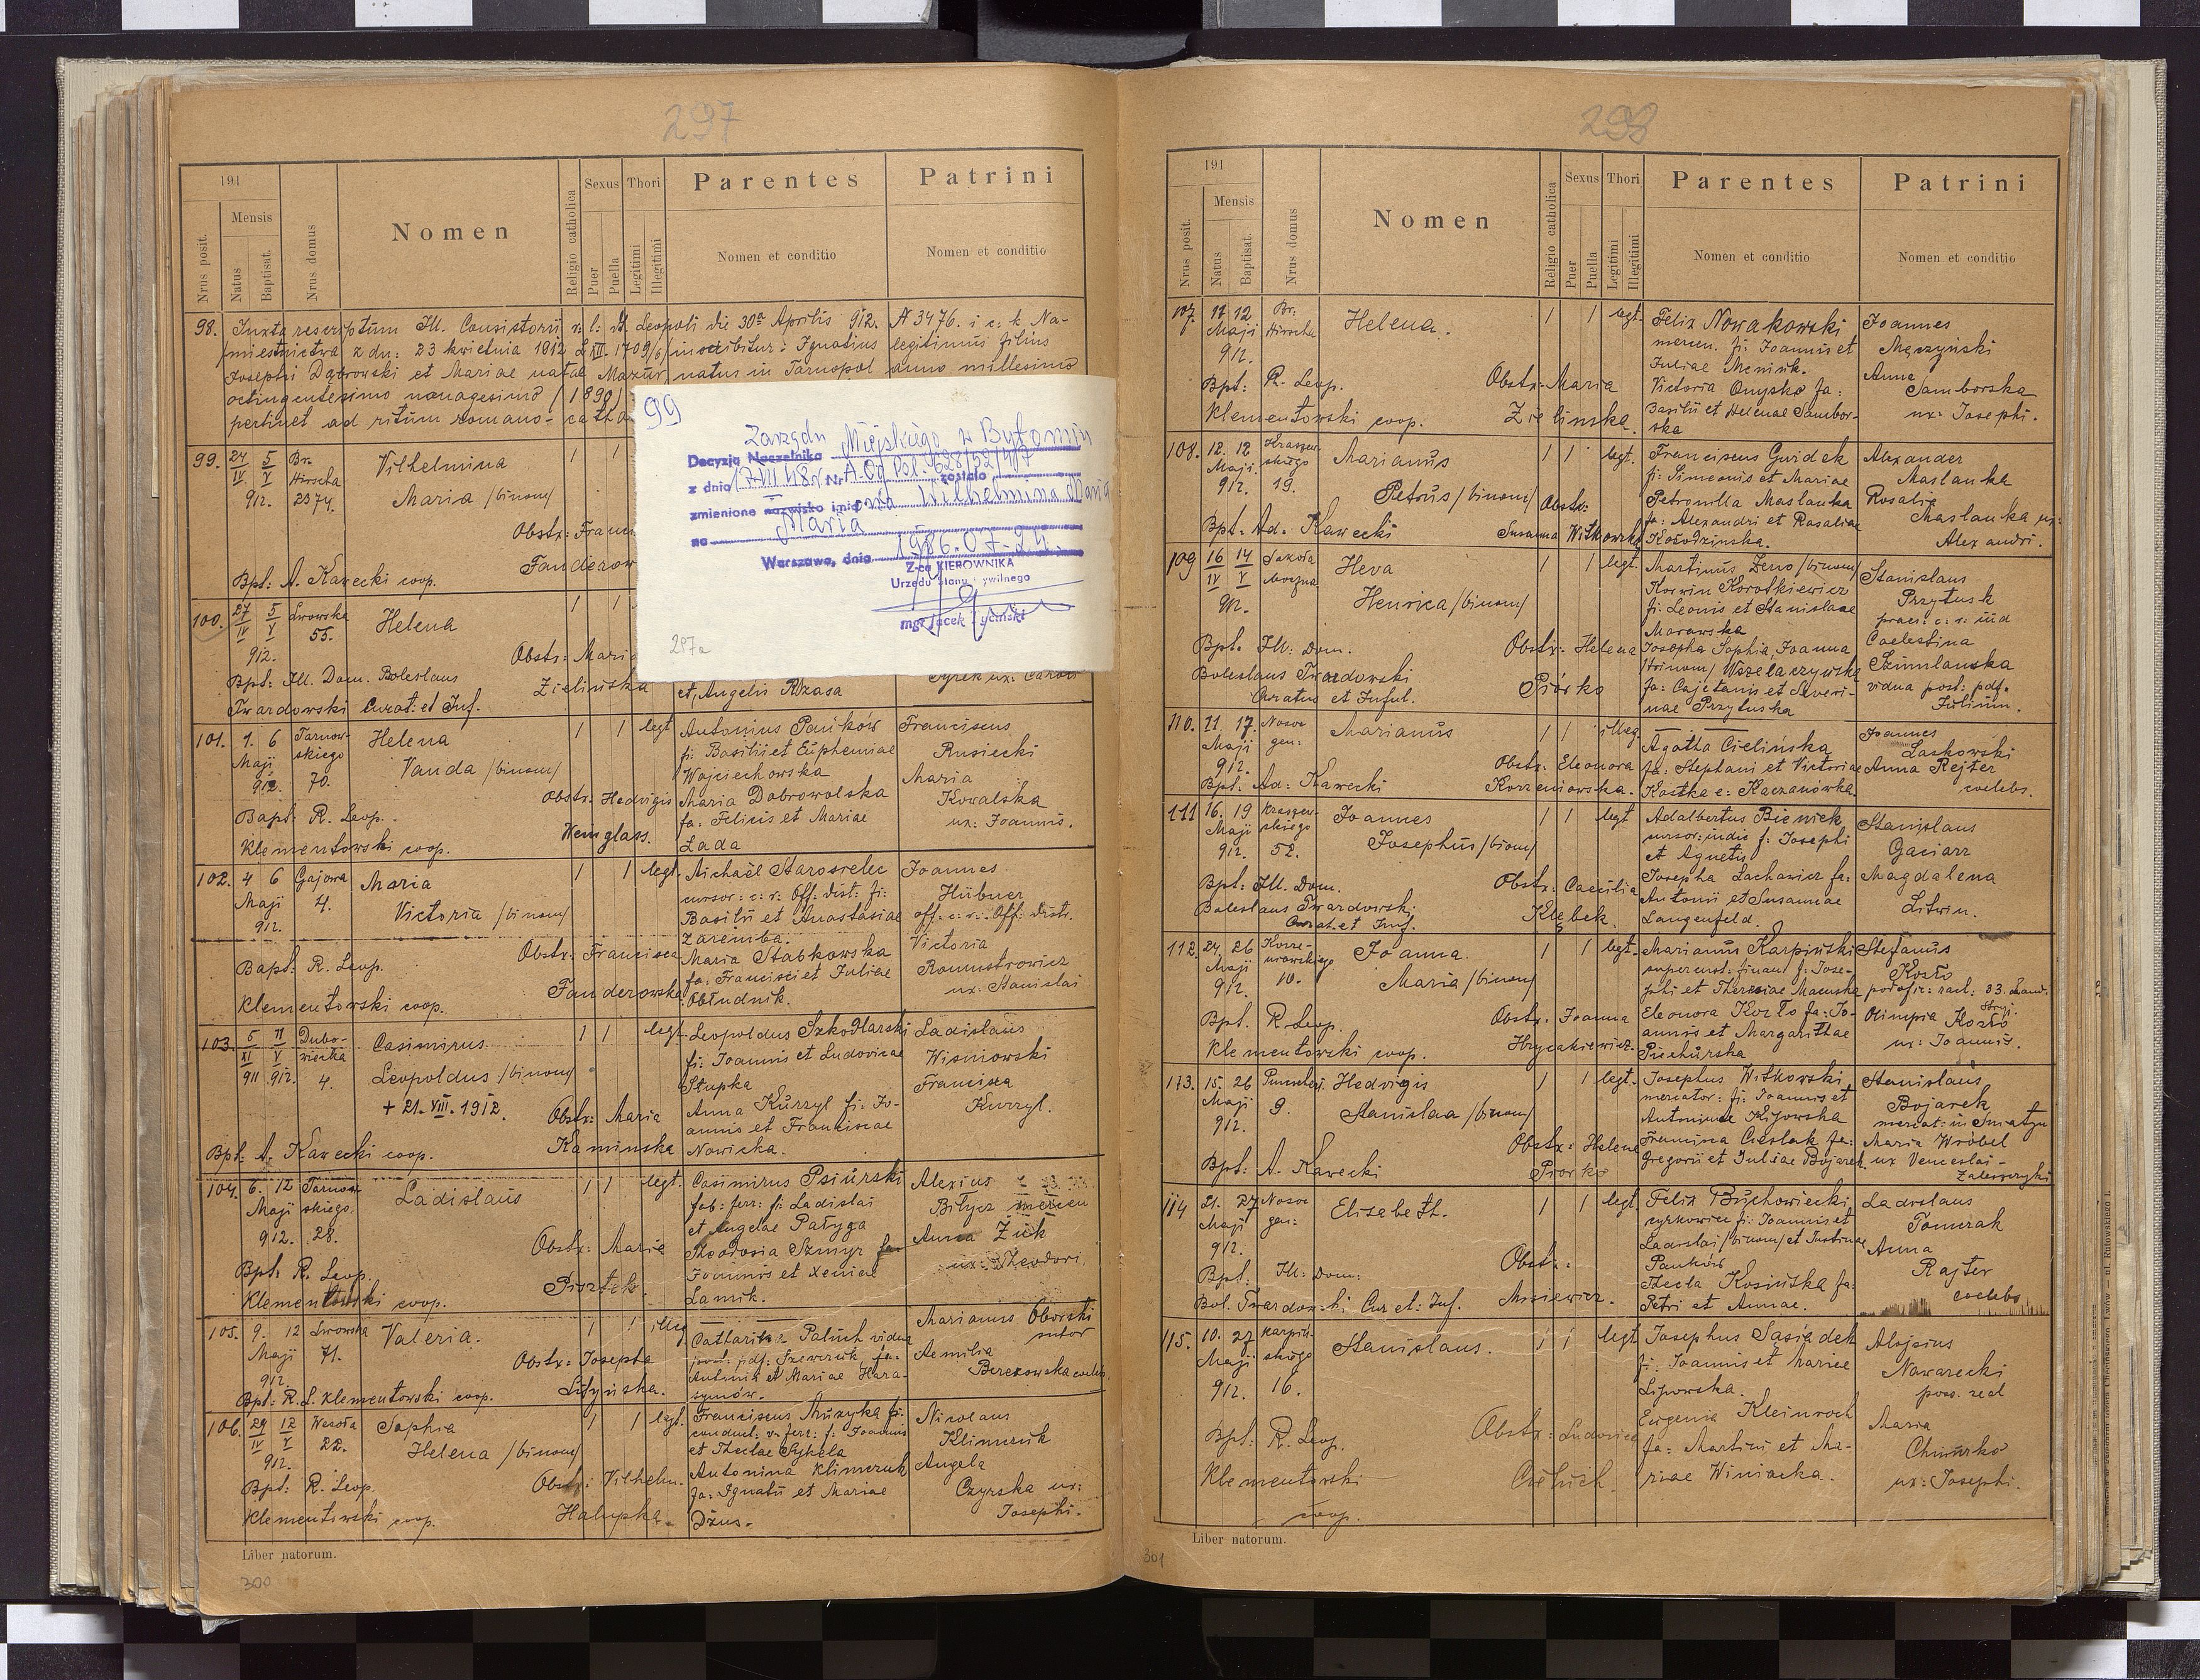 297
191
Mensis
Nrus posit.
Natus
Baptisat.
Nrus domus
Nomen
Religio catholica
Sexus
Puer
Puella
Thori
Legitimi
Illegitimi
Parentes
Nomen et conditio
Patrini
Nomen et conditio
98. Juxta rescriptum Ill. Consistorii r. l. Leopoli die 30a Aprilis 912. N 3476. i c. k Na-
miestnictwa z dn: 23 kwietnia 1912 L XII. 1709/6/ inscribitur: Ignatius legitimus filius
Josephi Dąbrowski et Mariae natae Mazur natus in Tarnopol anno millesimo
octingentesimo nonagesimo (1890)
pertinet ad ritum romano-
99
Zarządu Miejskiego w Bytomiu
Decyzją Naczelnika
z dnia Nr zostało
zmienione nazwisko imię Wilhelmina Maria
na Maria
Warszawa, dnia 1986.07.24.
Z-ca KIEROWNIKA
Urzędu Stanu Cywilnego
mgr Jacek
297a
99. 24 5 Br. Vilhelmina 1 1
IV V Hirscha
912. 2374. Maria /binom/
Obstr: Franc
Fanderow
Bpt: A. Kawecki coop.
100. 27 5 Lwowska Helena 1 1
IV V 55.
912.
Obstr: Maria
Bpt: Ill. Dom. Boleslaus Zielińska
et Angelis Rzasa
Twardowski Curat. et Inf.
101. 1. 6 Tarnow- Helena 1 1 legt Antonius Pańków Franciscus
Maji skiego Vanda /binom/ fi: Basilii et Euphemiae Rusiecki
912. 70. Wojciechowska Maria
Obstr. Hedvigis Maria Dobrowolska Kowalska
Bapt. R. Leop. fa: Felicis et Mariae ux: Joannis.
Klementowski coop. Heinglass. Lada
102. 4 6 Gajowa Maria 1 1 legt. Michaël Starosielec Joannes
Maji 4. Victoria /binom/ cursor: c: r: Off: dist: fi: Hübner
912. Basilii et Anastasiae off: c: r: Off: distr.
Zaremba. Victoria
Bapt. R. Leop. Obstr: Francisca Maria Stabkowska
Klementowski coop. Fanderowska fa: Francisci et Juliae ux: Stanislai
Obłudnik.
103. 5 11 Dubo- Casimirus 1 1 legt. Leopoldus Szkodlarski Ladislaus
XI V wiecka Leopoldus /binom/ fi: Joannis et Ludovicae Wisniowski
911 912. 4. Stupka Francisca
+ 21. VIII. 1912. Obstr: Maria Anna Kurzyl fi: Jo- Kurzyl.
annis et Franciscae
Bpt: A. Kawecki coop. Kaminska Nowicka.
104. 6. 12 Tarnow Ladislaus 1 1 legt. Casimirus Psiurski Alexius
Maji skiego. fab: ferr: fi: Ladislai
912. 28. et Angelae Pałyga
Obstr: Maria Theodosia Szmyr fa- Anna Zuk
Bpt: R. Leop. Joannis et Xeniae ux: Theodori.
Klementowski coop. Piontek. Lamik.
105. 9. 12 Lwowska Valeria. 1 1 illeg Catharina Paluch vidua Marianus Oborski
Maji 71. Obstr: Josepha post. pdf: Szewczuk, fa: sutor
912. Antonii et Mariae Hara- Aemilia
Bpt: R. L. Klementowski coop. symów. Berezowska coelebs.
106. 29 12 Wesoła Sophia 1 1 legt. Franciscus Muzyka fi: Nicolaus
IV V 22. Helena /binom/ conduct: v. ferr: f: Joannis Klimczuk
912. et Theclae Sykela
Bpt: R. Leop. Obstr: Vilhelm. Antonina Klimczuk Angela
Klementowski coop. Halupka. fa: Ignatii et Mariae Czyrska ux:
Dżus. Josephi.
Liber natorum.
300
298
191
Mensis
Nrus posit.
Natus
Baptisat.
Nrus domus
Nomen
Religio catholica
Sexus
Puer
Puella
Thori
Legitimi
Illegitimi
Parentes
Nomen et conditio
Patrini
Nomen et conditio
107. 11 12 Br. Helena. 1 1 legt. Felix Nowakowski Joannes
Maji Hirscha mercen. fi: Joannis et Męczyński
912. Juliae Mcinik. Anna
Bpt: R. Leop. Obstr: Maria Victoria Onysko fa: Samborska
Klementowski coop. Zielinska. Basilii et Helenae Sambor- ux: Josephi.
ska
108. 12. 12 Kraszew- Marianus 1 1 legt. Franciscus Gwidek Alexander
Maji. skiego fi: Simeonis et Mariae Maslanka
912. 19. Petrus /binom/ Obstr: Petronilla Maslanka Rosalia
fa: Alexandri et Rosaliae Maslanka ux:
Bpt: Ad. Kawecki Susanna Witkowska Kołodzinska. Alexandri.
109 16 14 Sakola Heva 1 1 legt. Martinus Zeno /binom/ Stanislaus
IV V Korwin Korotkiewicz Przytusk
912. Henrica /binom/ fi: Leonis et Stanislaae
Morawska Caelestina
Bpt. Ill. Dom. Obstr: Helena Josepha Sophia Joanna Szumlanska
Boleslaus Twardowski /trinom/ Wszelaczynska vidua post: pdf.
Curatus et Inful. Piórko fa: Cajetanis et Severi- Julium.
nae Przytuska
110. 11. 17. Nosoc Marianus 1 1 illeg Agatha Cielińska Joannes
Maji gen: fa: Stephani et Victoriae Laskowski
912. Obstr. Eleonora Anna Rejter
Bpt: Ad: Kawecki Korzeniowska. Kostka e: Kaczanówka. coelebs.
111 16. 19 Kraszew- Joannes 1 1 legt Adalbertus Bieniek Stanislaus
Maji skiego Josephus /binom/ cursor: indic f: Josephi Gaciarz
912. 52. et Agnetis
Bpt: Ill. Dom. Obstr: Caecilia Josepha Lachowicz fa: Magdalena
Boleslaus Twardowski Antonii et Susannae Litwin.
Curat. et Inf. Klębek. Langenfeld.
112. 24. 26 Korze- Joanna 1 1 legt. Marianus Karpiński Stefanus
Maji niowskiego fi: Jose- Kosło
912. 10. Maria /binom/ phi et Theresiae
Bpt. R. Leop. Obstr. Joanna Eleonora Kozło fa: Jo- Olimpia Kozło
Klementowski coop. Hrycakiewicz. annis et Margarithae ux: Joannis.
Piechurska
113. 15. 26 Hedvigis 1 1 legt. Josephus Witkowski Stanislaus
Maji 9. Stanislaa /binom/ mercator: fi: Joannis et Bojarek
912. Antoninae Kijowska
Obstr: Helena Francisca Cieslak fa: Maria Wróbel
Bpt: A. Kawecki Piórko Gregorii et Juliae Bojarek ux Venceslai-
114 21. 27 Nosoc Elisabeth. 1 1 legt. Felix Bychowiecki Ladislaus
Maji gen: fi: Joannis et Tomczak
912. Ladislai /binom/ et Justinae Anna
Bpt: Ill: Dom: Obstr: Pańków Rajter
Bol. Twardowski Cur et: Inf. Mosiewicz. Thecla Kosińska fa: coelebs
Petri et Annae.
115. 10. 27 Karpiń- Stanislaus. 1 1 legt Josephus Sąsiadek Alojsius
Maji skiego fi: Joannis et Mariae Nawarecki
912. 16. Lipowska.
Bpt: R. Leop. Obstr: Ludovica Eugenia Kleinroch Maria
Klementowski fa: Martini et Ma- Chmurko
coop. riae Winiacka. ux: Josephi.
Liber natorum.
301